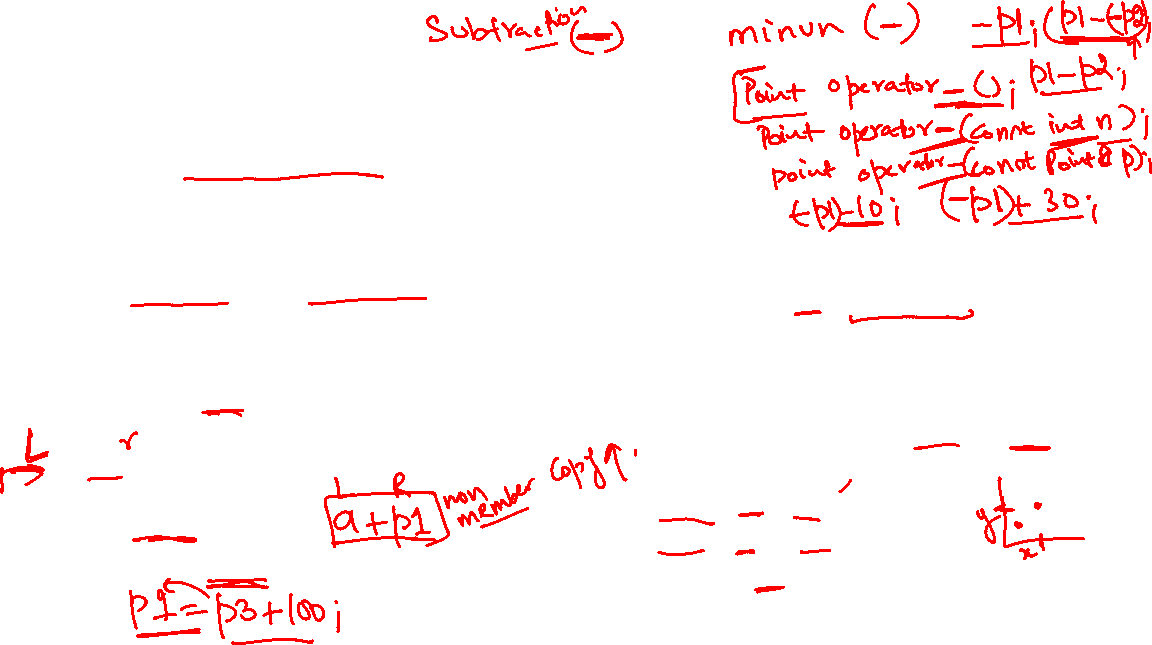 Subtraction (-)
minun (-) -p1; (p1-(-p2);
Point operator-(); p1-p2;
Point operator-(connt int n);
point operator-(const Point& p);
(-p1)-10; (-p1)+30;
L r
L R
a+p1 non member copy↑.
y
x
p1=p3+100;